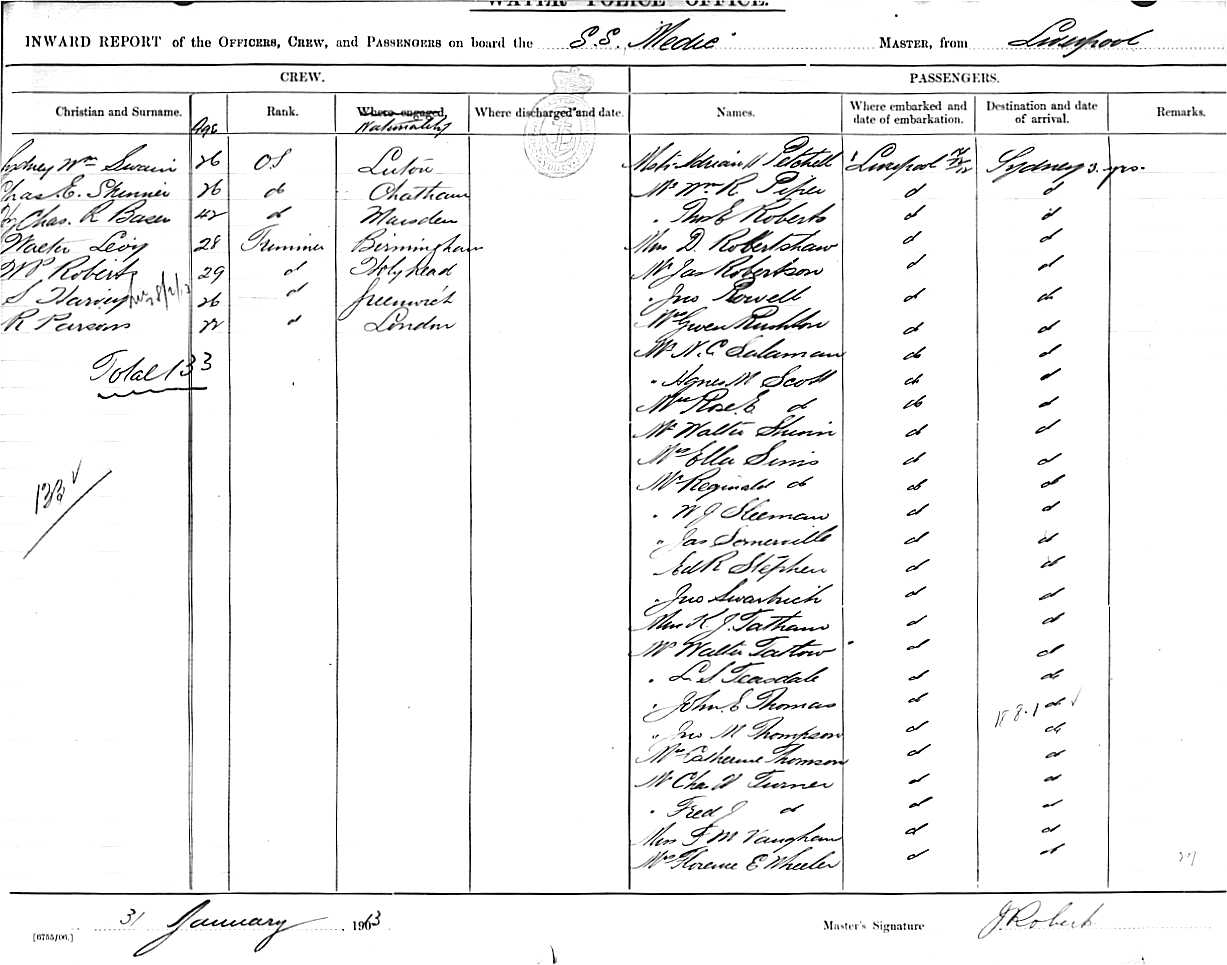 WATER POLICE OFFICE.
INWARD REPORT of the OFFICERS, CREW, and PASSENGERS on board the S.S. Medic MASTER, from Liverpool
CREW. PASSENGERS.
Christian and Surname. Age Rank. Where engaged, Nationality Where discharged and date. Names. Where embarked and date of embarkation. Destination and date of arrival. Remarks.
Sydney Wm Swain 26 OS Luton Mstr Adrian Petchell 1 Liverpool Sydney 3. yrs.
Chas. E. Skinner 26 do Chatham Mr Wm R Piper do do
Chas. R Baser 42 do Marsden " Thos E Roberts do do
Walter Levy 28 Trimmer Birmingham Miss D. Robertshaw do do
Wm Roberts 29 do Holyhead Mr Jas Robertson do do
S Harvey 26 do Greenwich " Jno Rowell do do
R Parsons 22 do London Gwen Rushton do do
Total 133 Mr N. C Salaman do do
" Agnes M Scott do do
Rose E do do do
Mr Walter Shinn do do
Mrs Ella Sims do do
133 Mr Reginald do do do
" W J Sleeman do do
" Jas Somerville do do
Ed R Stephen do do
" Jno Swarbrick do do
Miss K J. Tatham do do
Mr Walter Tatlow do do
" L S Teasdale do do
" John E Thomas do do
" Jno M Thompson do do
Catherine Thomson do do
Mr Chas H Turner do do
" Fred J do do do
Miss F M Vaughan do do
Mrs Florence E Wheeler do do
31 January 1913 Master's Signature J. Robert
(6755/06.)